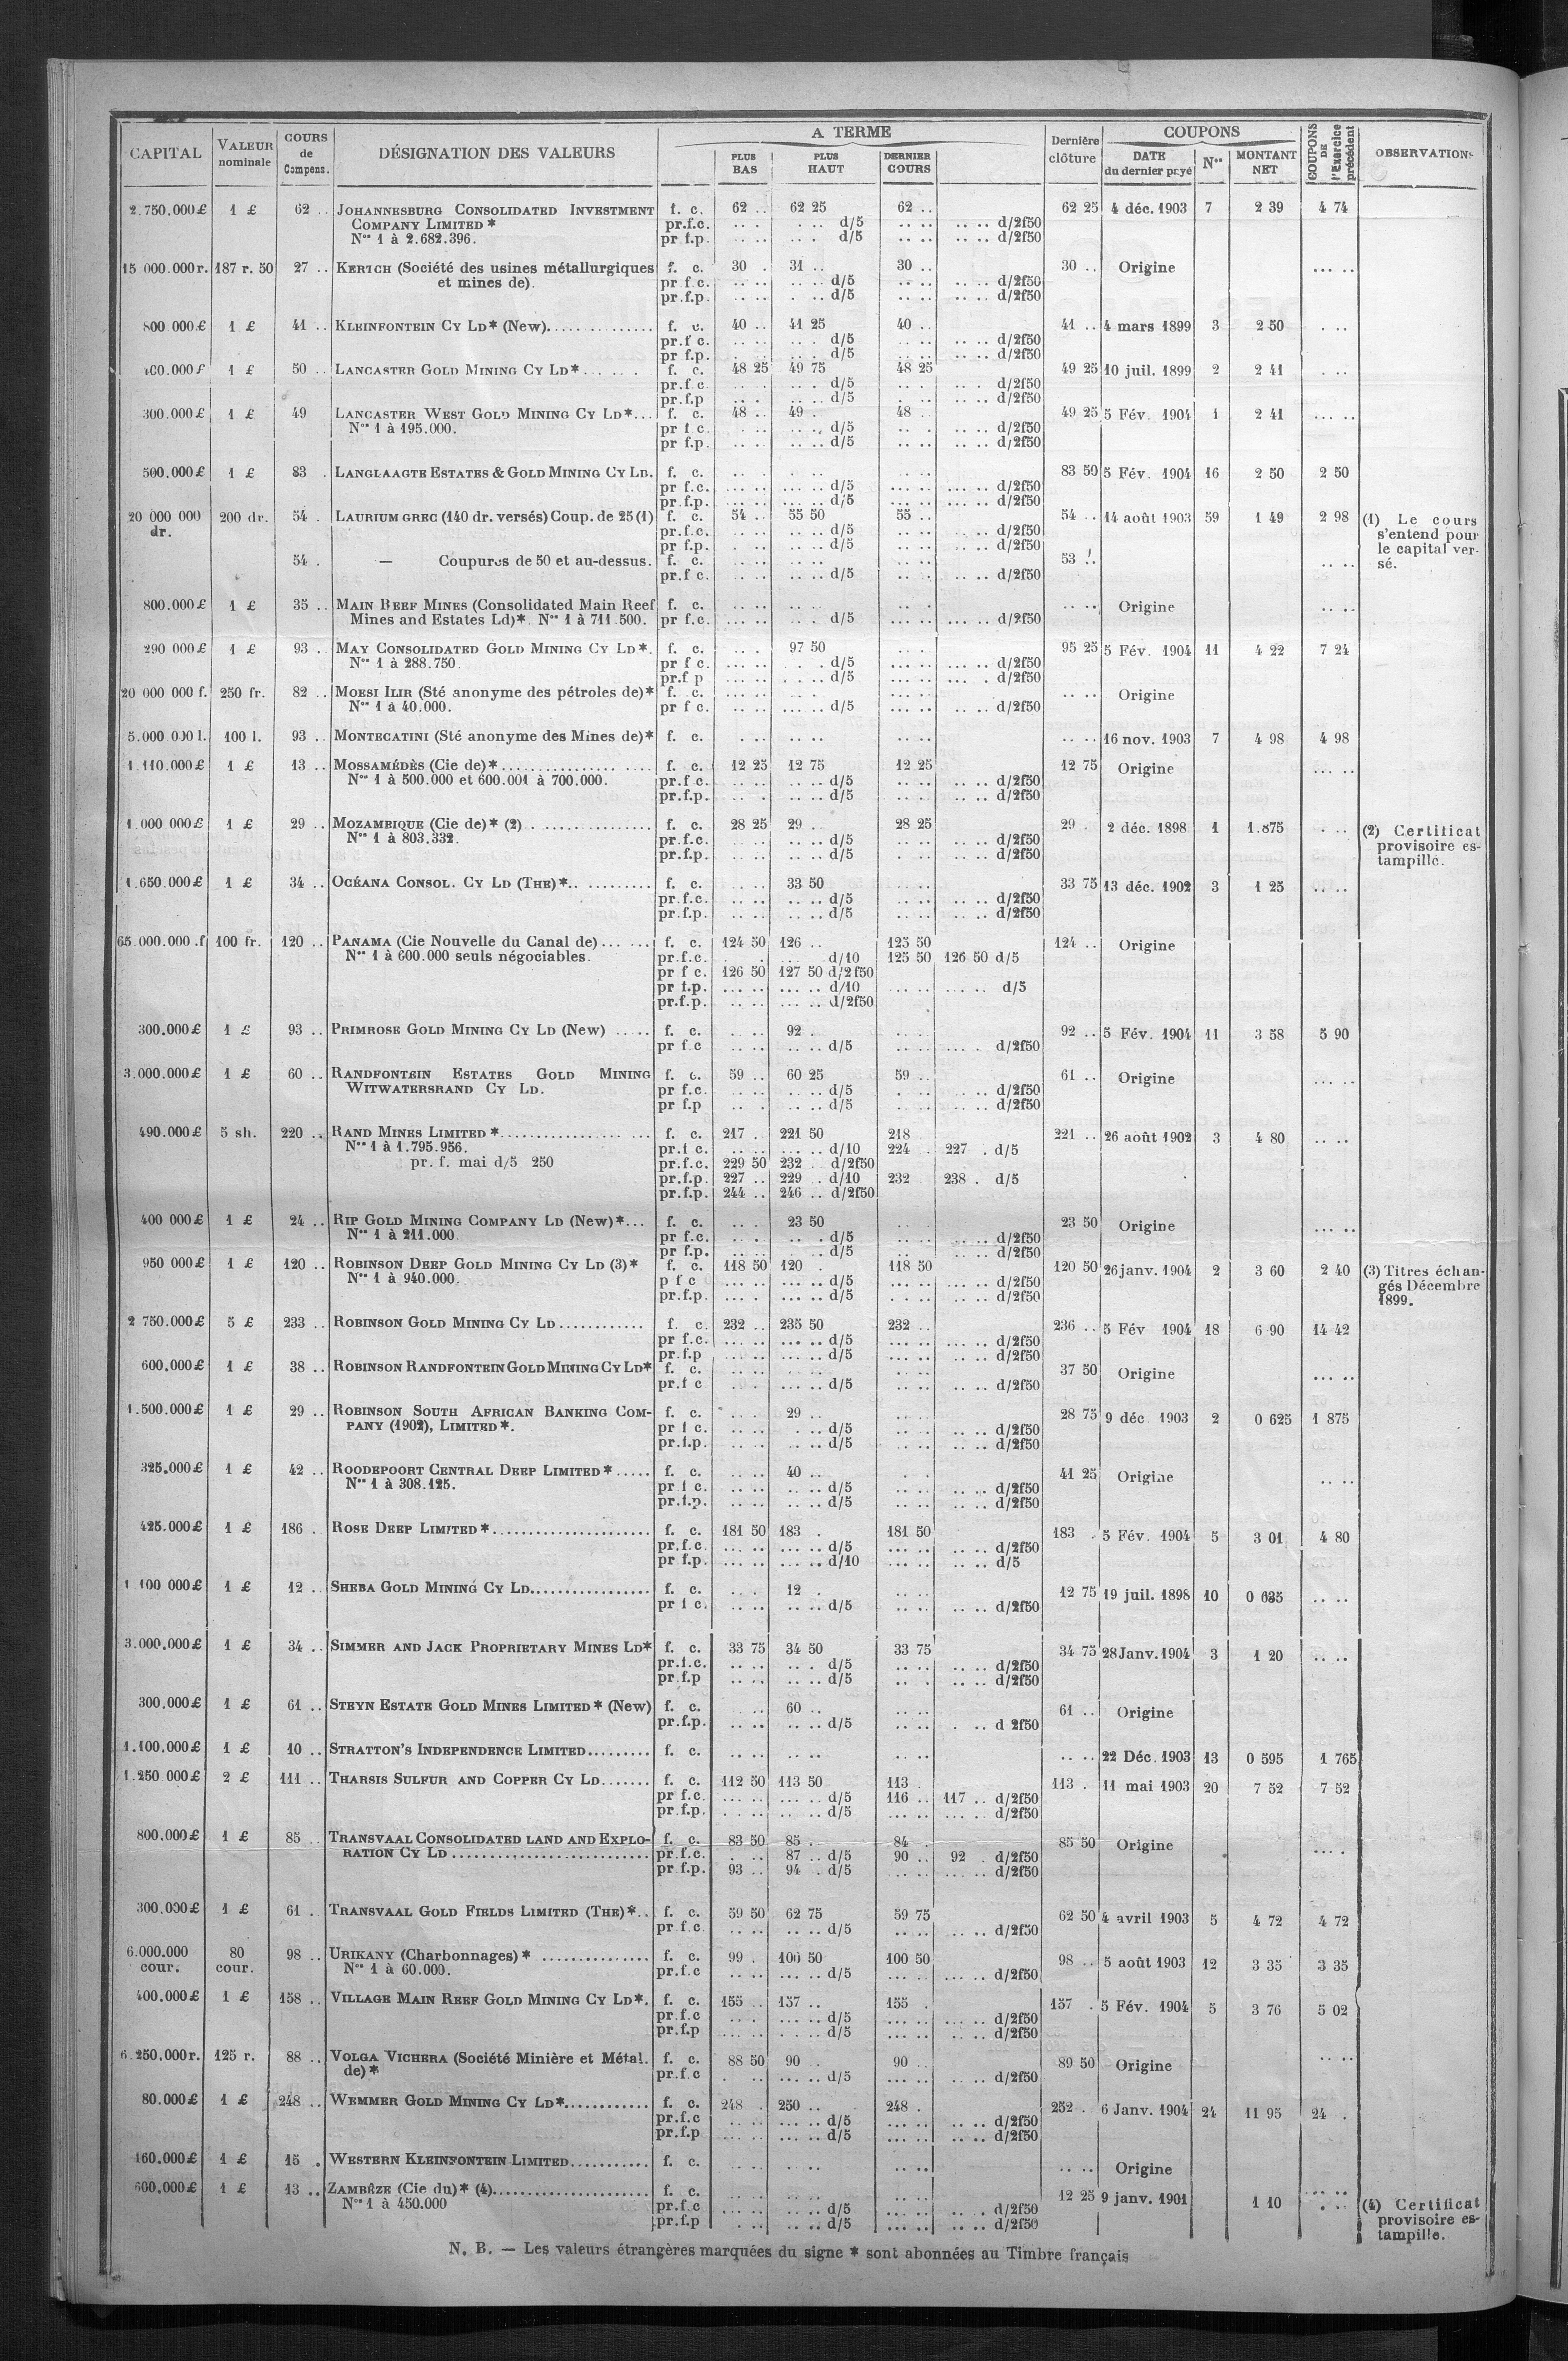 CAPITAL | VALEUR nominale | COURS de Compens. | DÉSIGNATION DES VALEURS | A TERME | PLUS BAS | PLUS HAUT | DERNIER COURS | Dernière clôture | COUPONS | DATE du dernier payé | Nos | MONTANT NET | COUPONS DE l'Exercice précédent | OBSERVATIONS
2.750.000 £ 1 £ 62 .. JOHANNESBURG CONSOLIDATED INVESTMENT f. c. 62 .. 62 25 62 .. 62 25 4 déc. 1903 7 2 39 4 74
COMPANY LIMITED * pr.f.c. d/5 d/2f50
Nos 1 à 2.682.396. pr f.p. d/5 d/2f50
15 000.000 r. 187 r. 50 27 .. KERTCH (Société des usines métallurgiques f. c. 30 . 31 .. 30 .. 30 .. Origine
et mines de). pr f.c. d/5 d/2f50
pr.f.p. d/5 d/2f50
800 000 £ 1 £ 41 .. KLEINFONTEIN CY LD* (New) f. c. 40 .. 41 25 40 .. 41 .. 4 mars 1899 3 2 50
pr.f c. d/5 d/2f50
pr f.p. d/5 d/2f50
1 £ 50 .. LANCASTER GOLD MINING CY LD* f. c. 48 25 49 75 48 25 49 25 10 juil. 1899 2 2 41
pr.f c. d/5 d/2f50
pr.f.p d/5 d/2f50
300.000 £ 1 £ 49 LANCASTER WEST GOLD MINING CY LD* f. c. 48 .. 49 . 48 .. 49 25 5 Fév. 1904 1 2 41
Nos 1 à 195.000. pr f c. d/5 d/2f50
pr f.p. d/5 d/2f50
500.000 £ 1 £ 83 . LANGLAAGTE ESTATES & GOLD MINING CY LD. f. c. 83 50 5 Fév. 1904 16 2 50 2 50
pr f.c. d/5 d/2f50
pr.f.p. d/5 d/2f50
20 000 000 dr. 200 dr. 54 . LAURIUM GREC (140 dr. versés) Coup. de 25 (1) f. c. 54 .. 55 50 55 .. 54 .. 14 août 1903 59 1 49 2 98 (1) Le cours s'entend pour le capital versé.
pr.f.c. d/5 d/2f50
pr f.p. d/5 d/2f50
54 . — Coupures de 50 et au-dessus. f. c. 53
pr.f c. d/5 d/2f50
800.000 £ 1 £ 35 .. MAIN REEF MINES (Consolidated Main Reef f. c. Origine
Mines and Estates Ld)* Nos 1 à 711.500. pr f.c. d/5 d/2f50
290 000 £ 1 £ 93 . MAY CONSOLIDATED GOLD MINING CY LD*. f. c. 97 50 95 25 5 Fév. 1904 11 4 22 7 24
Nos 1 à 288.750. pr f c. d/5 d/2f50
pr.f p d/5 d/2f50
20 000 000 f. 250 fr. 82 .. MOESI ILIR (Sté anonyme des pétroles de)* f. c. Origine
Nos 1 à 40.000. pr f c. d/5 d/2f50
5.000 000 l. 100 l. 93 .. MONTECATINI (Sté anonyme des Mines de)* f. c. 16 nov. 1903 7 4 98 4 98
1.110.000 £ 1 £ 13 .. MOSSAMÉDÈS (Cie de)* f. c. 12 25 12 75 12 25 12 75 Origine
Nos 1 à 500.000 et 600.001 à 700.000. pr.f c. d/5 d/2f50
pr.f.p. d/5 d/2f50
1.000 000 £ 1 £ 29 .. MOZAMBIQUE (Cie de)* (2) f. c. 28 25 29 . 28 25 29 . 2 déc. 1898 1 1.875 (2) Certificat provisoire estampillé.
Nos 1 à 803.332. pr.f.c. d/5 d/2f50
pr.f.p. d/5 d/2f50
1.650.000 £ 1 £ 34 .. OCÉANA CONSOL. CY LD (THE)* f. c. 33 50 33 75 13 déc. 1902 3 1 25
pr.f.c. d/5 d/2f50
pr.f.p. d/5 d/2f50
65.000.000 .f 100 fr. 120 .. PANAMA (Cie Nouvelle du Canal de) f. c. 124 50 126 .. 125 50 124 .. Origine
Nos 1 à 600.000 seuls négociables. pr.f.c. d/10 125 50 126 50 d/5
pr f c. 126 50 127 50 d/2f50
pr f.p. d/10 d/5
pr.f.p. d/2f50
300.000 £ 1 £ 93 .. PRIMROSE GOLD MINING CY LD (New) f. c. 92 . 92 .. 5 Fév. 1904 11 3 58 5 90
pr f c d/5 d/2f50
3.000.000 £ 1 £ 60 .. RANDFONTEIN ESTATES GOLD MINING f. c. 59 .. 60 25 59 .. 61 .. Origine
WITWATERSRAND CY LD. pr f.c. d/5 d/2f50
pr f.p d/5 d/2f50
490.000 £ 5 sh. 220 .. RAND MINES LIMITED * f. c. 217 . 221 50 218 221 .. 26 août 1902 3 4 80
Nos 1 à 1.795.956. pr.f c. d/10 224 . 227 . d/5
pr. f. mai d/5 250 pr.f.c. 229 50 232 d/2f50
pr.f.p. 227 .. 229 .. d/10 232 238 . d/5
pr.f.p. 244 .. 246 .. d/2f50
400 000 £ 1 £ 24 .. RIP GOLD MINING COMPANY LD (New)* f. c. 23 50 23 50 Origine
Nos 1 à 211.000 pr f.c. d/5 d/2f50
pr f.p. d/5 d/2f50
950 000 £ 1 £ 120 .. ROBINSON DEEP GOLD MINING CY LD (3)* f. c. 118 50 120 . 118 50 120 50 26 janv. 1904 2 3 60 2 40 (3) Titres échangés Décembre 1899.
Nos 1 à 940.000. p f c d/5 d/2f50
pr.f.p. d/5 d/2f50
2 750.000 £ 5 £ 233 .. ROBINSON GOLD MINING CY LD f. c. 232 .. 235 50 232 .. 236 .. 5 Fév 1904 18 6 90 14 42
pr f.c. d/5 d/2f50
pr.f.p d/5 d/2f50
600.000 £ 1 £ 38 .. ROBINSON RANDFONTEIN GOLD MINING CY LD* f. c. 37 50 Origine
pr.f c d/5 d/2f50
1.500.000 £ 1 £ 29 .. ROBINSON SOUTH AFRICAN BANKING COM- f. c. 29 .. 28 75 9 déc 1903 2 0 625 1 875
PANY (1902), LIMITED*. pr f c. d/5 d/2f50
pr.f.p. d/5 d/2f50
325.000 £ 1 £ 42 .. ROODEPOORT CENTRAL DEEP LIMITED* f. c. 40 .. 41 25 Origine
Nos 1 à 308.125. pr f c. d/5 d/2f50
pr.f.p. d/5 d/2f50
425.000 £ 1 £ 186 . ROSE DEEP LIMITED* f. c. 181 50 183 . 181 50 183 . 5 Fév. 1904 5 3 01 4 80
pr.f.c. d/5 d/2f50
pr f.p. d/10 d/5
1 100 000 £ 1 £ 12 .. SHEBA GOLD MINING CY LD f. c. 12 . 12 75 19 juil. 1898 10 0 635
pr f c. d/5 d/2f50
3.000.000 £ 1 £ 34 .. SIMMER AND JACK PROPRIETARY MINES LD* f. c. 33 75 34 50 33 75 34 75 28 Janv. 1904 3 1 20
pr.f.c. d/5 d/2f50
pr.f.p d/5 d/2f50
300.000 £ 1 £ 61 .. STEYN ESTATE GOLD MINES LIMITED* (New) f. c. 60 .. 61 .. Origine
pr.f.p. d/5 d 2f50
1.100.000 £ 1 £ 10 .. STRATTON'S INDEPENDENCE LIMITED f. c. 22 Déc. 1903 13 0 595 1 765
1.250 000 £ 2 £ 111 .. THARSIS SULFUR AND COPPER CY LD f. c. 112 50 113 50 113 . 113 . 11 mai 1903 20 7 52 7 52
pr f.c. d/5 116 .. 117 .. d/2f50
pr.f.p. d/5 d/2f50
800.000 £ 1 £ 85 .. TRANSVAAL CONSOLIDATED LAND AND EXPLO- f. c. 83 50 85 . 84 . 85 50 Origine
RATION CY LD pr.f.c. 87 .. d/5 90 .. 92 . d/2f50
pr f.p. 93 .. 94 . d/5 d/2f50
300.000 £ 1 £ 61 . TRANSVAAL GOLD FIELDS LIMITED (THE)* f. c. 59 50 62 75 59 75 62 50 4 avril 1903 5 4 72 4 72
pr f.c d/5 d/2f50
6.000.000 cour. 80 cour. 98 .. URIKANY (Charbonnages)* f. c. 99 . 100 50 100 50 98 .. 5 août 1903 12 3 35 3 35
Nos 1 à 60.000. pr.f.c d/5 d/2f50
400.000 £ 1 £ 158 .. VILLAGE MAIN REEF GOLD MINING CY LD*. f. c. 155 .. 157 .. 155 . 157 . 5 Fév. 1904 5 3 76 5 02
pr.f.c d/5 d/2f50
pr.f.p d/5 d/2f50
6.250.000 r. 125 r. 88 .. VOLGA VICHERA (Société Minière et Métal. f. c. 88 50 90 .. 90 .. 89 50 Origine
de)* pr.f.c d/5 d/2f50
80.000 £ 1 £ 248 .. WEMMER GOLD MINING CY LD* f. c. 248 . 250 .. 248 . 252 . 6 Janv. 1904 24 11 95 24 .
pr.f.c d/5 d/2f50
pr.f.p d/5 d/2f50
160.000 £ 1 £ 15 . WESTERN KLEINFONTEIN LIMITED f. c. Origine
600.000 £ 1 £ 13 .. ZAMBÈZE (Cie du)* (4) f. c. 12 25 9 janv. 1901 1 10 (4) Certificat provisoire estampille.
Nos 1 à 450.000 pr.f.c d/5 d/2f50
pr.f.p d/5 d/2f50
N. B. — Les valeurs étrangères marquées du signe * sont abonnées au Timbre français